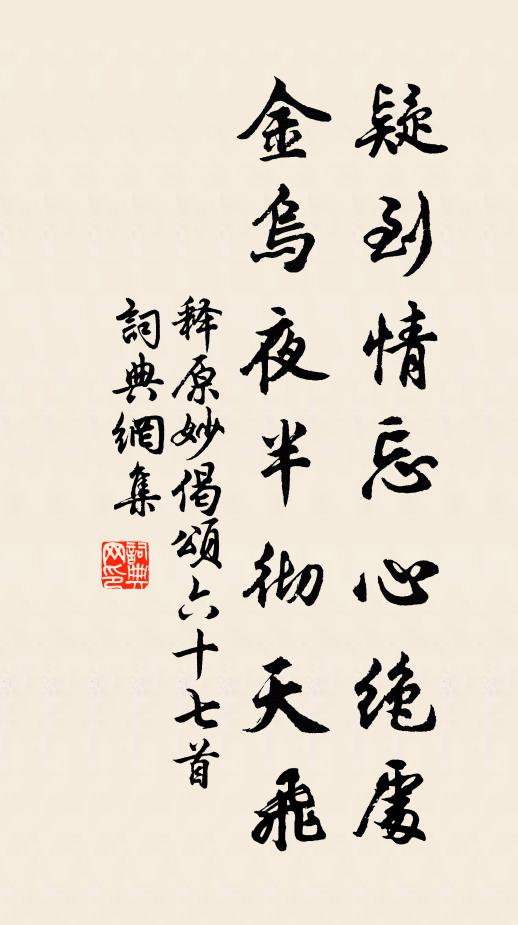 疑到情忘心絶處
金烏夜半彻天飛
释原妙偈頌六十七首
詞典網集
詞典网印